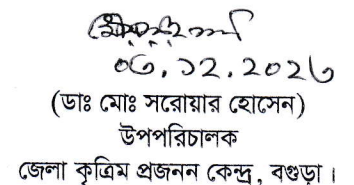 (ডাঃ মোঃ সরোয়ার হোসেন)
উপপরিচালক
জেলা কৃত্রিম প্রজনন কেন্দ্র, বগুড়া।